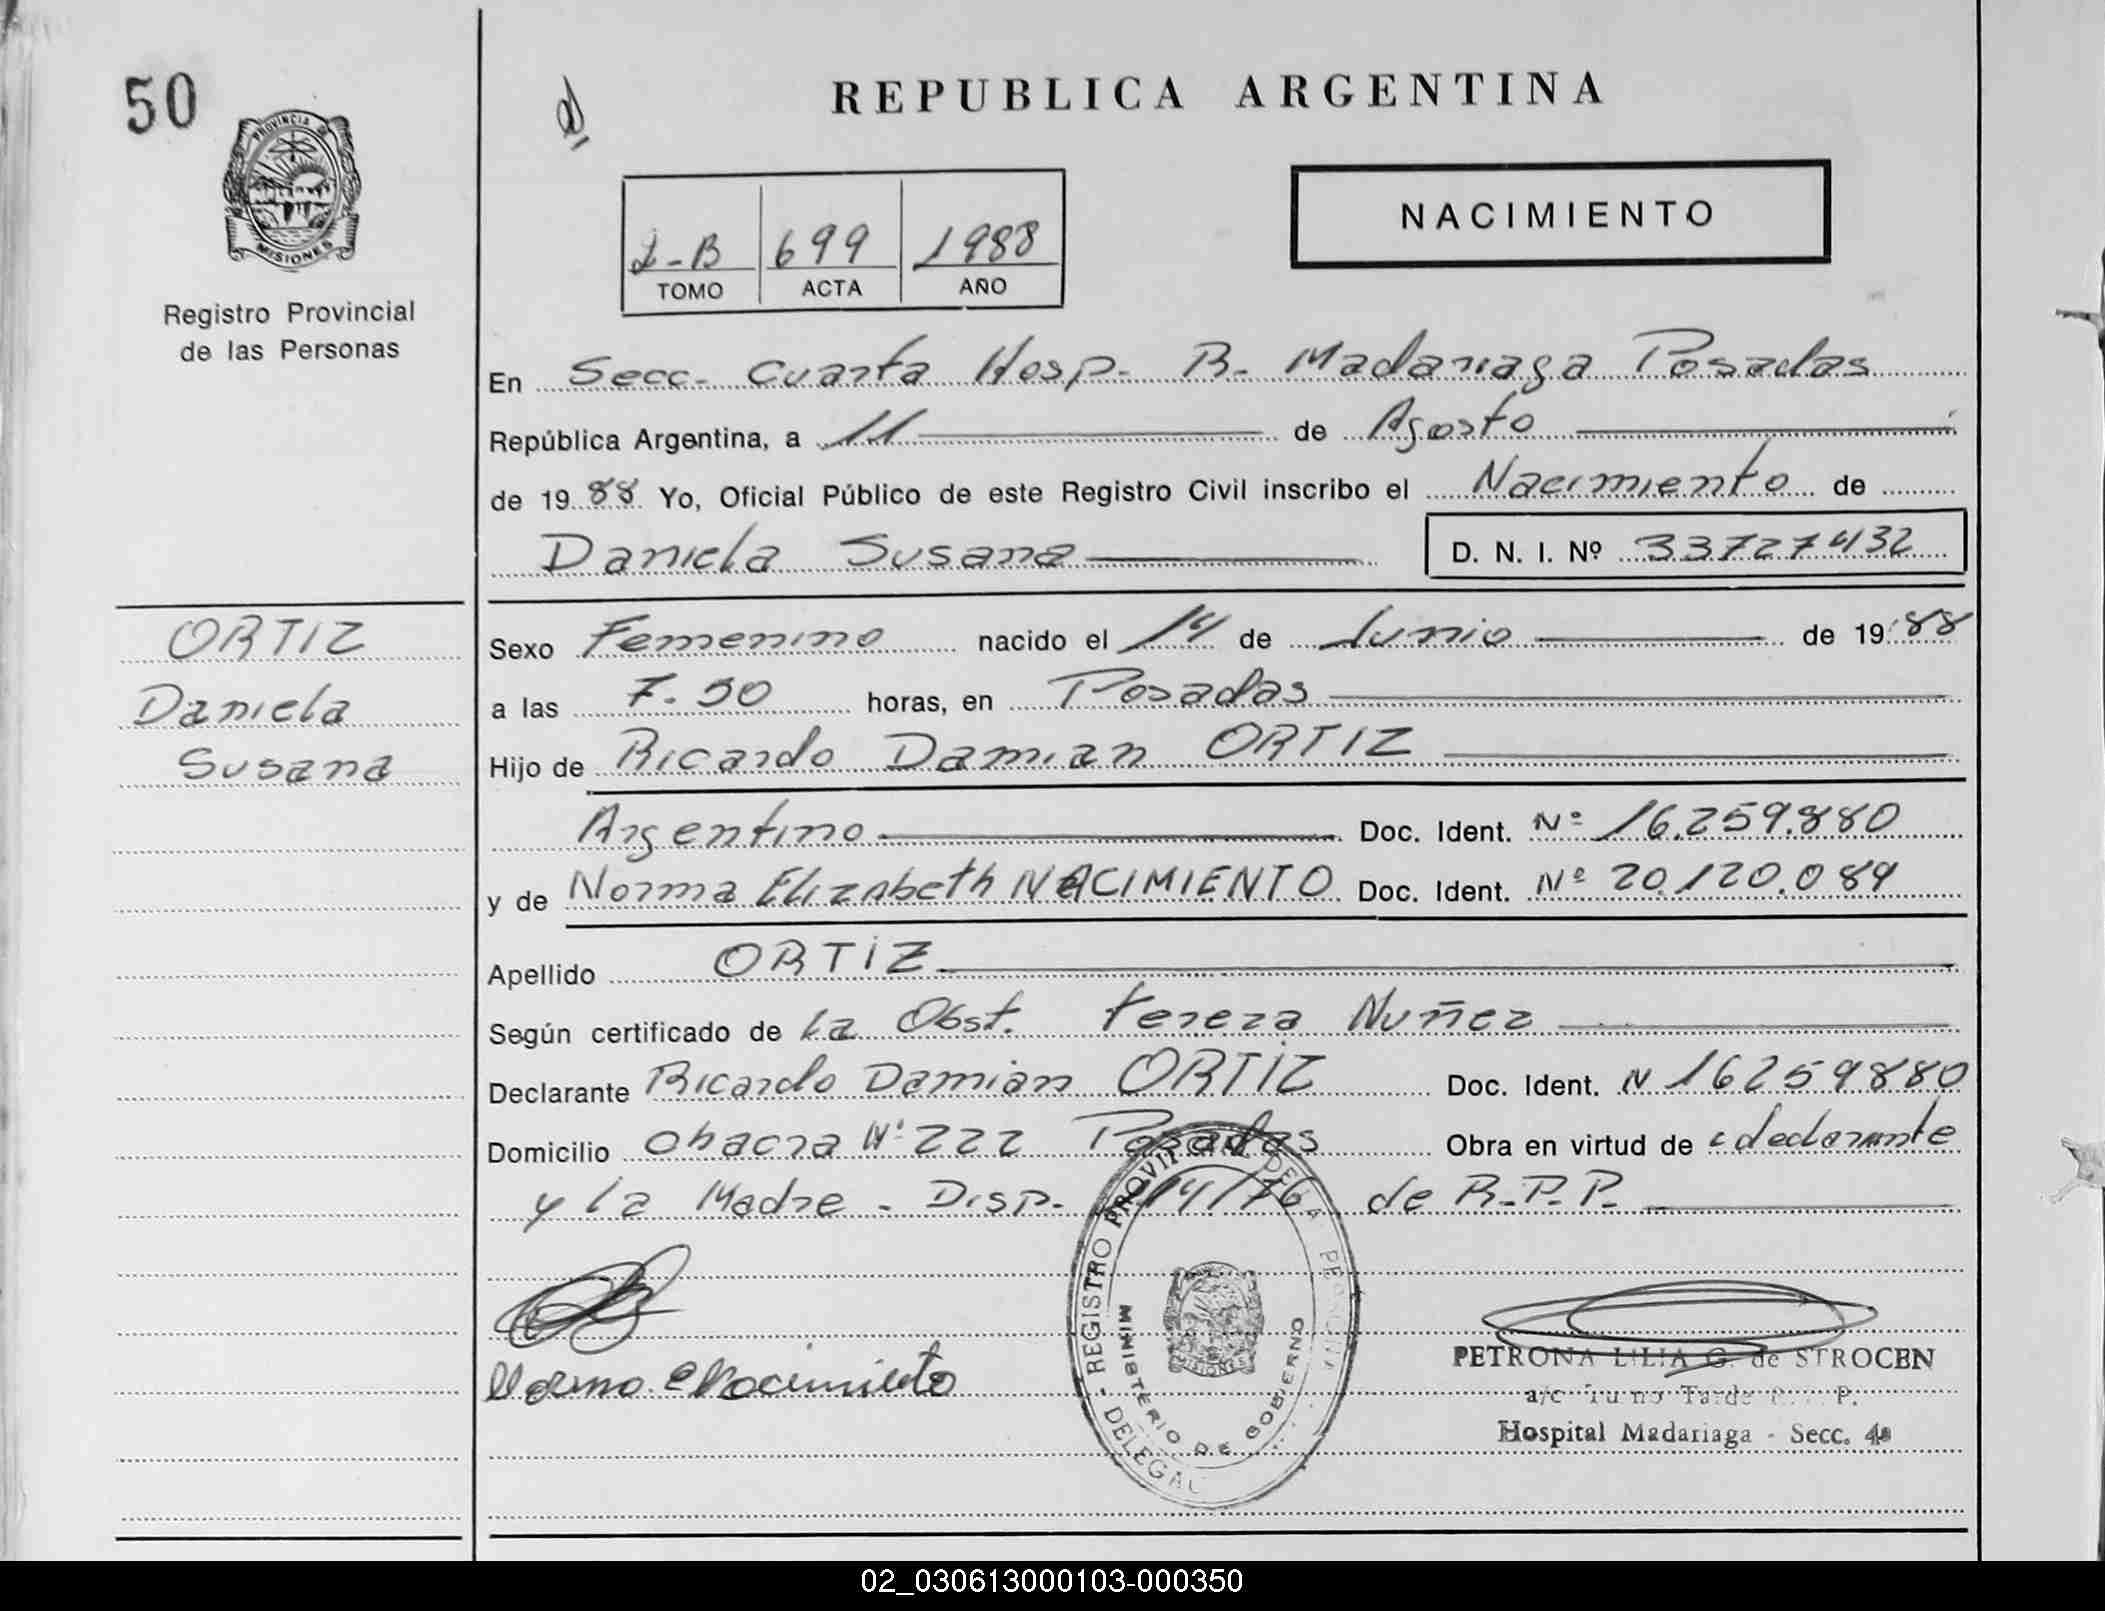 50
PROVINCIA DE
MISIONES
Registro Provincial
de las Personas
REPUBLICA ARGENTINA
NACIMIENTO
2-B 699 1988
TOMO ACTA AÑO
En Secc. Cuarta Hosp. R. Madariaga Posadas
República Argentina, a 11 de Agosto
de 1988 Yo, Oficial Público de este Registro Civil inscribo el Nacimiento de
Daniela Susana D. N. I. Nº 33727432
ORTIZ
Daniela
Susana
Sexo Femenino nacido el 14 de Junio de 1988
a las 7.50 horas, en Posadas
Hijo de Ricardo Damian ORTIZ
Argentino Doc. Ident. Nº 16.259.880
y de Norma Elizabeth NACIMIENTO Doc. Ident. Nº 20.120.089
Apellido ORTIZ
Según certificado de la Obst. Tereza Nuñez
Declarante Ricardo Damian ORTIZ Doc. Ident. N 16259880
Domicilio Chacra Nº 222 Posadas Obra en virtud de declarante
y la Madre - Disp. 14/76 de R.P.P.
REGISTRO PROVINCIAL DE LA PERSONA
MINISTERIO DE GOBIERNO
MISIONES
Norma E Nacimiento
PETRONA LILIA G. de STROCEN
a/c Turno Tarde
Hospital Madariaga - Secc. 4a
02_030613000103-000350